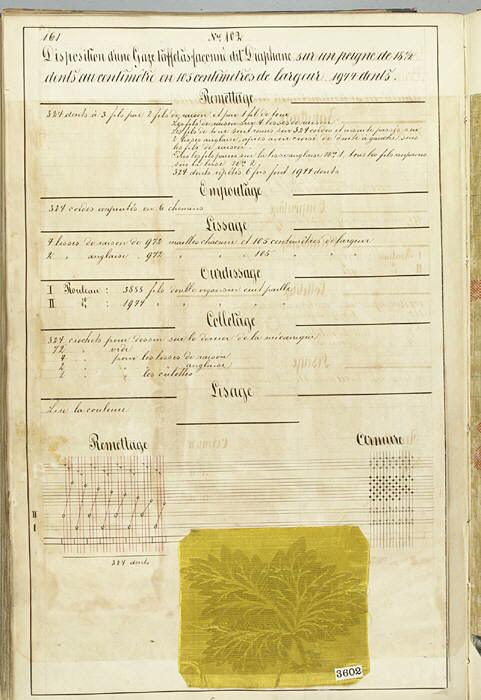 161
No. 102
Disposition d'une Gaze taffetas façonné dit Diaphane sur un peigne de 18¾
dents au centimètre en 105 centimètres de largeur 1944 dents.
Remettage
324 dents à 3 fils par 2 fils de raison et par 1 fil de tour
Les fils de raison sur 4 lisses de raison
Les fils de tour sont remis sur 324 cordes et ensuite passés sur
2 lisses anglaise, après avoir croisé de droite à gauche sous
les fils de raison
sur la lisse No. 2,
324 dents répétés 6 fois font 1944 dents
Empoutage
324 cordes empoutés en 6 chemins
Lissage
4 lisses de raison de 972 mailles chacune et 105 centimètres de largeur
2 " anglaise " 972 " " " 105 " " "
Ourdissage
I Rouleau : 3888 fils double organsin cuit paille
II do : 1944 " " " " "
Colletage
324 crochets pour dessin sur le derrier de la mécanique
72 " vide
4 " pour les lisses de raison
2 " " " anglaise
2 " " les
Lisage
Lire la couleur
Remettage Armure
II
I
324 dents
3602